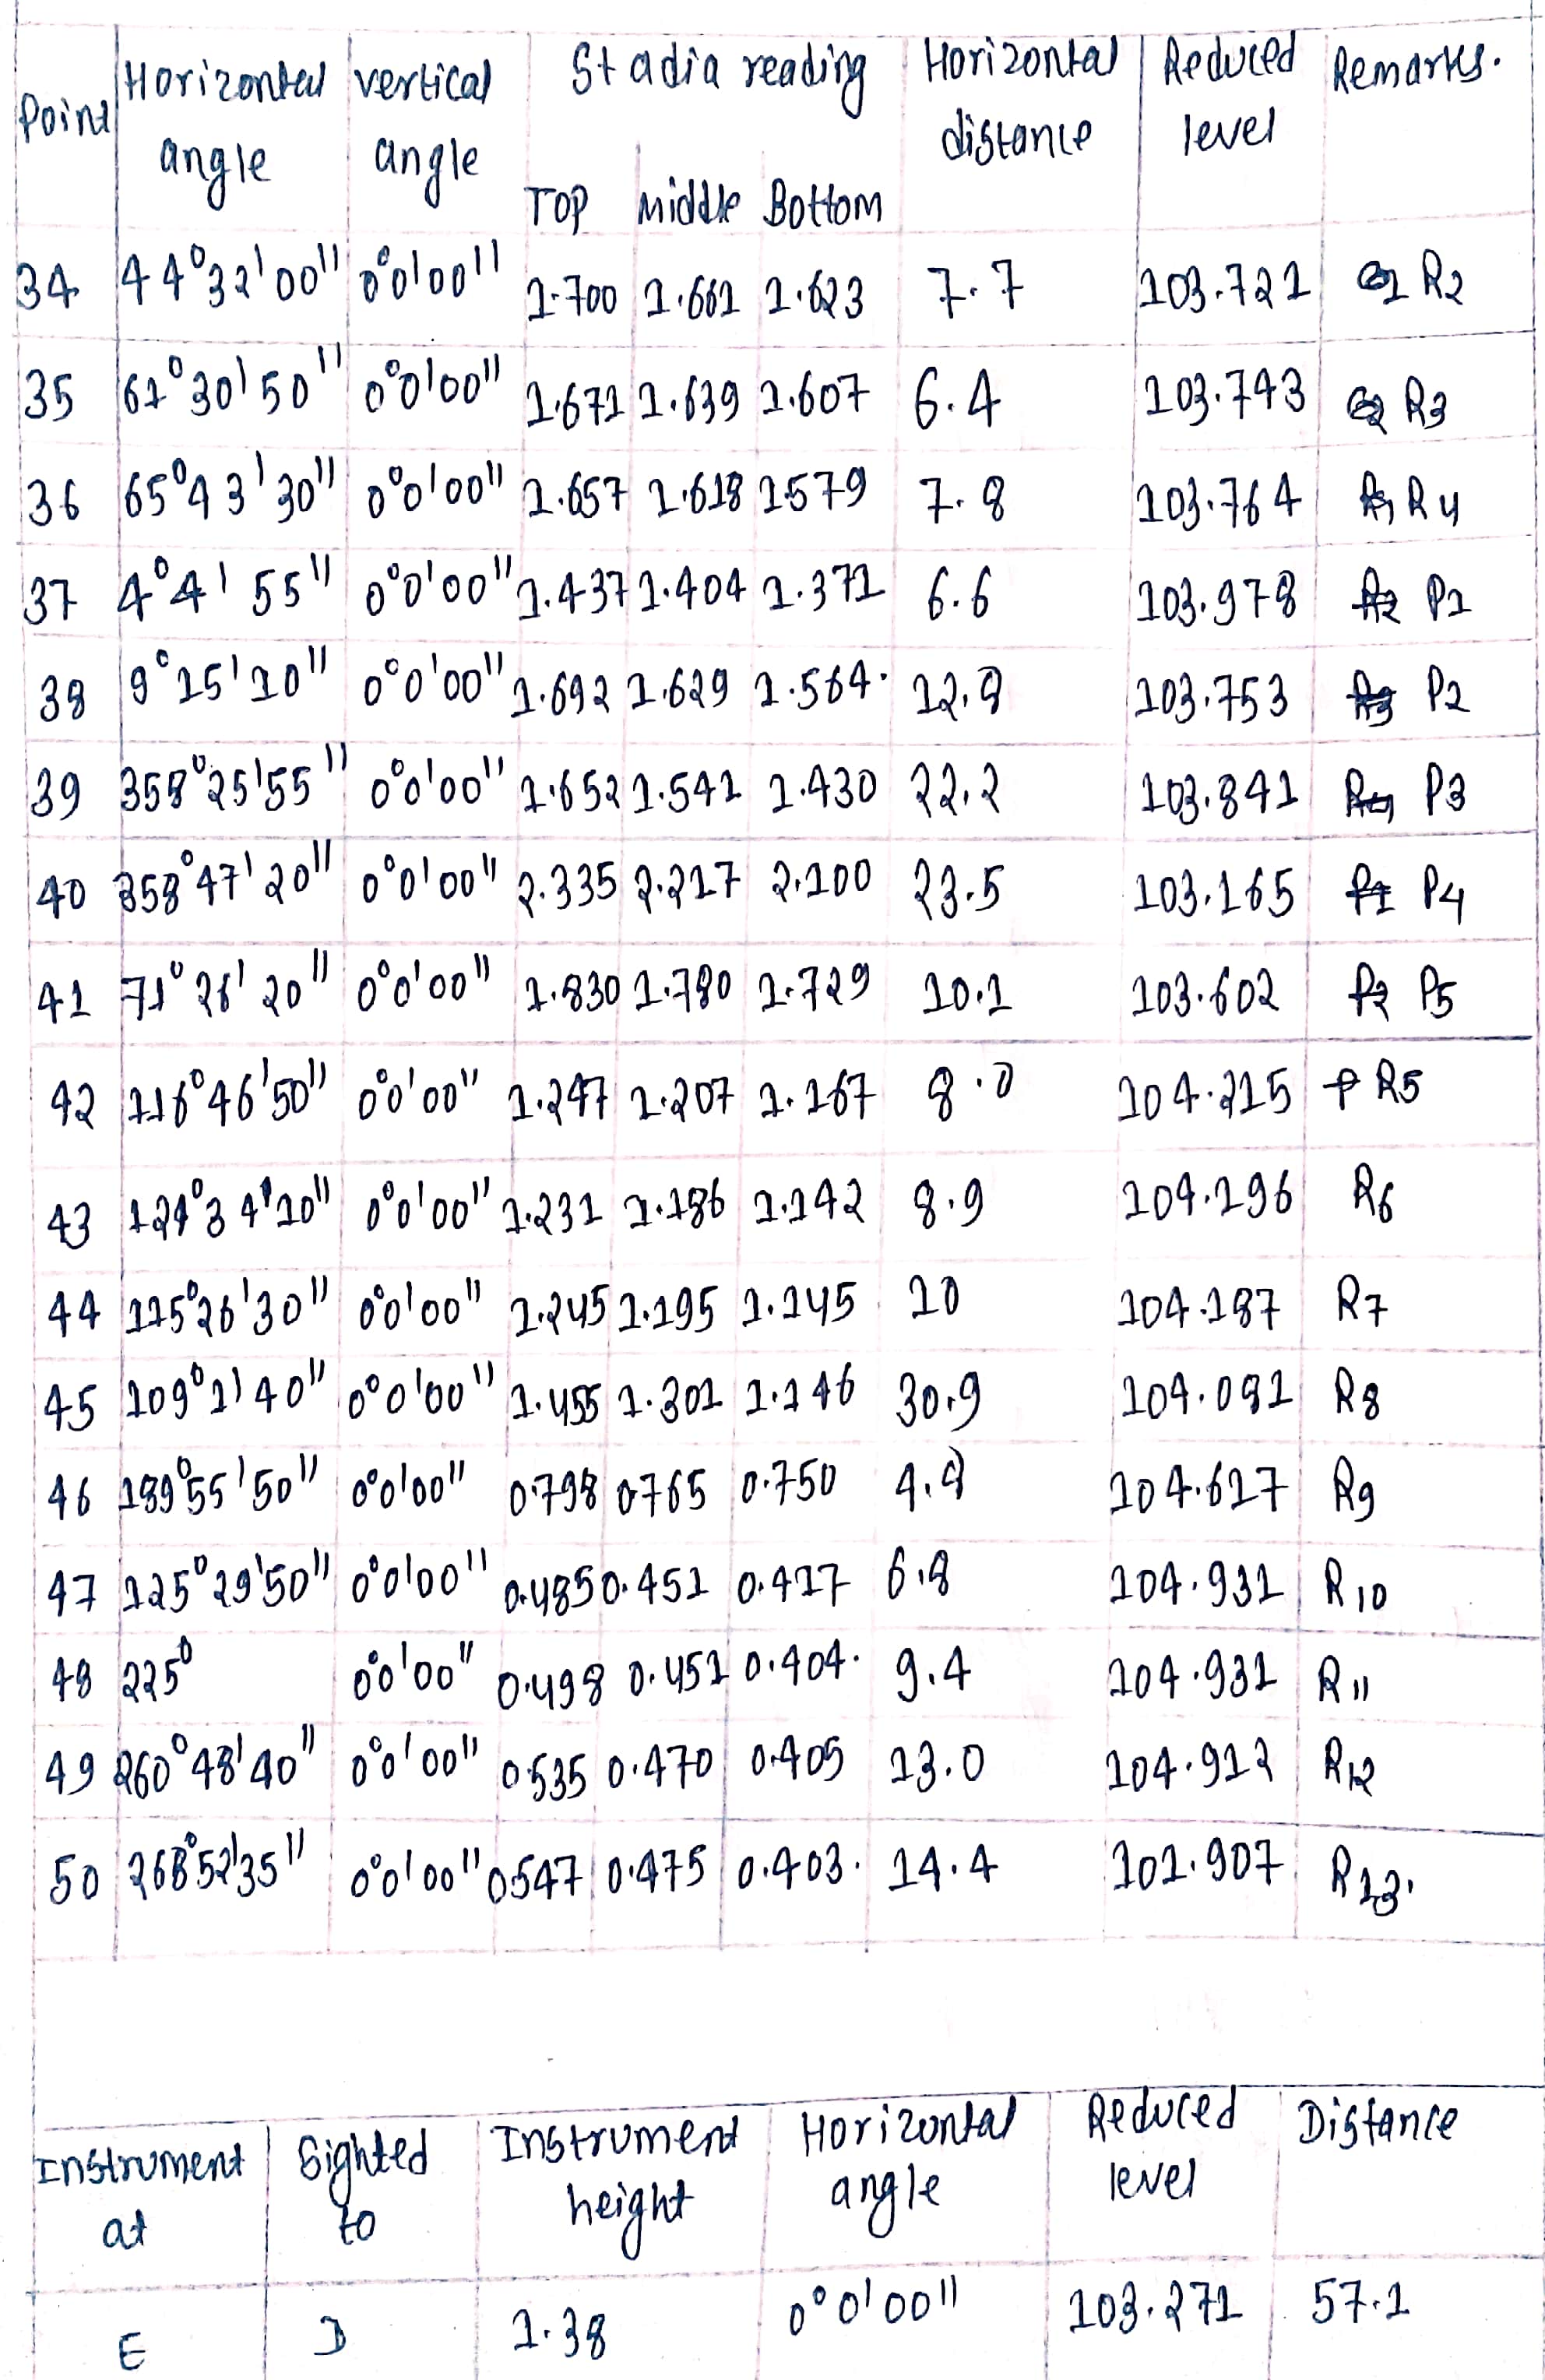 Point Horizontal angle vertical angle Stadia reading Horizontal distance Reduced level Remarks.
Top Middle Bottom
34 44°32'00" 0°0'00" 1.700 1.661 1.623 7.7 103.721 R2
35 61°30'50" 0°0'00" 1.671 1.639 1.607 6.4 103.743 R3
36 65°43'30" 0°0'00" 1.657 1.618 1.579 7.8 103.764 R4
37 4°4'55" 0°0'00" 1.437 1.404 1.371 6.6 103.978 P1
38 9°15'10" 0°0'00" 1.692 1.629 1.564. 12.8 103.753 P2
39 358°25'55" 0°0'00" 1.652 1.541 1.430 22.2 103.841 P3
40 358°47'20" 0°0'00" 2.335 2.217 2.100 23.5 103.165 P4
41 71°26'20" 0°0'00" 1.830 1.780 1.729 10.1 103.602 P5
42 116°46'50" 0°0'00" 1.247 1.207 1.167 8.0 104.215 R5
43 124°34'10" 0°0'00" 1.231 1.186 1.142 8.9 104.196 R6
44 115°26'30" 0°0'00" 1.245 1.195 1.145 10 104.187 R7
45 109°1'40" 0°0'00" 1.455 1.301 1.146 30.9 104.081 R8
46 189°55'50" 0°0'00" 0.798 0.765 0.750 4.8 104.617 R9
47 125°29'50" 0°0'00" 0.485 0.451 0.417 6.8 104.931 R10
48 225° 0°0'00" 0.498 0.451 0.404. 9.4 104.931 R11
49 260°48'40" 0°0'00" 0.535 0.470 0.405 13.0 104.912 R12
50 268°52'35" 0°0'00" 0.547 0.475 0.403. 14.4 101.907 R13.
Instrument at Sighted to Instrument height Horizontal angle Reduced level Distance
E D 1.38 0°0'00" 103.271 57.1